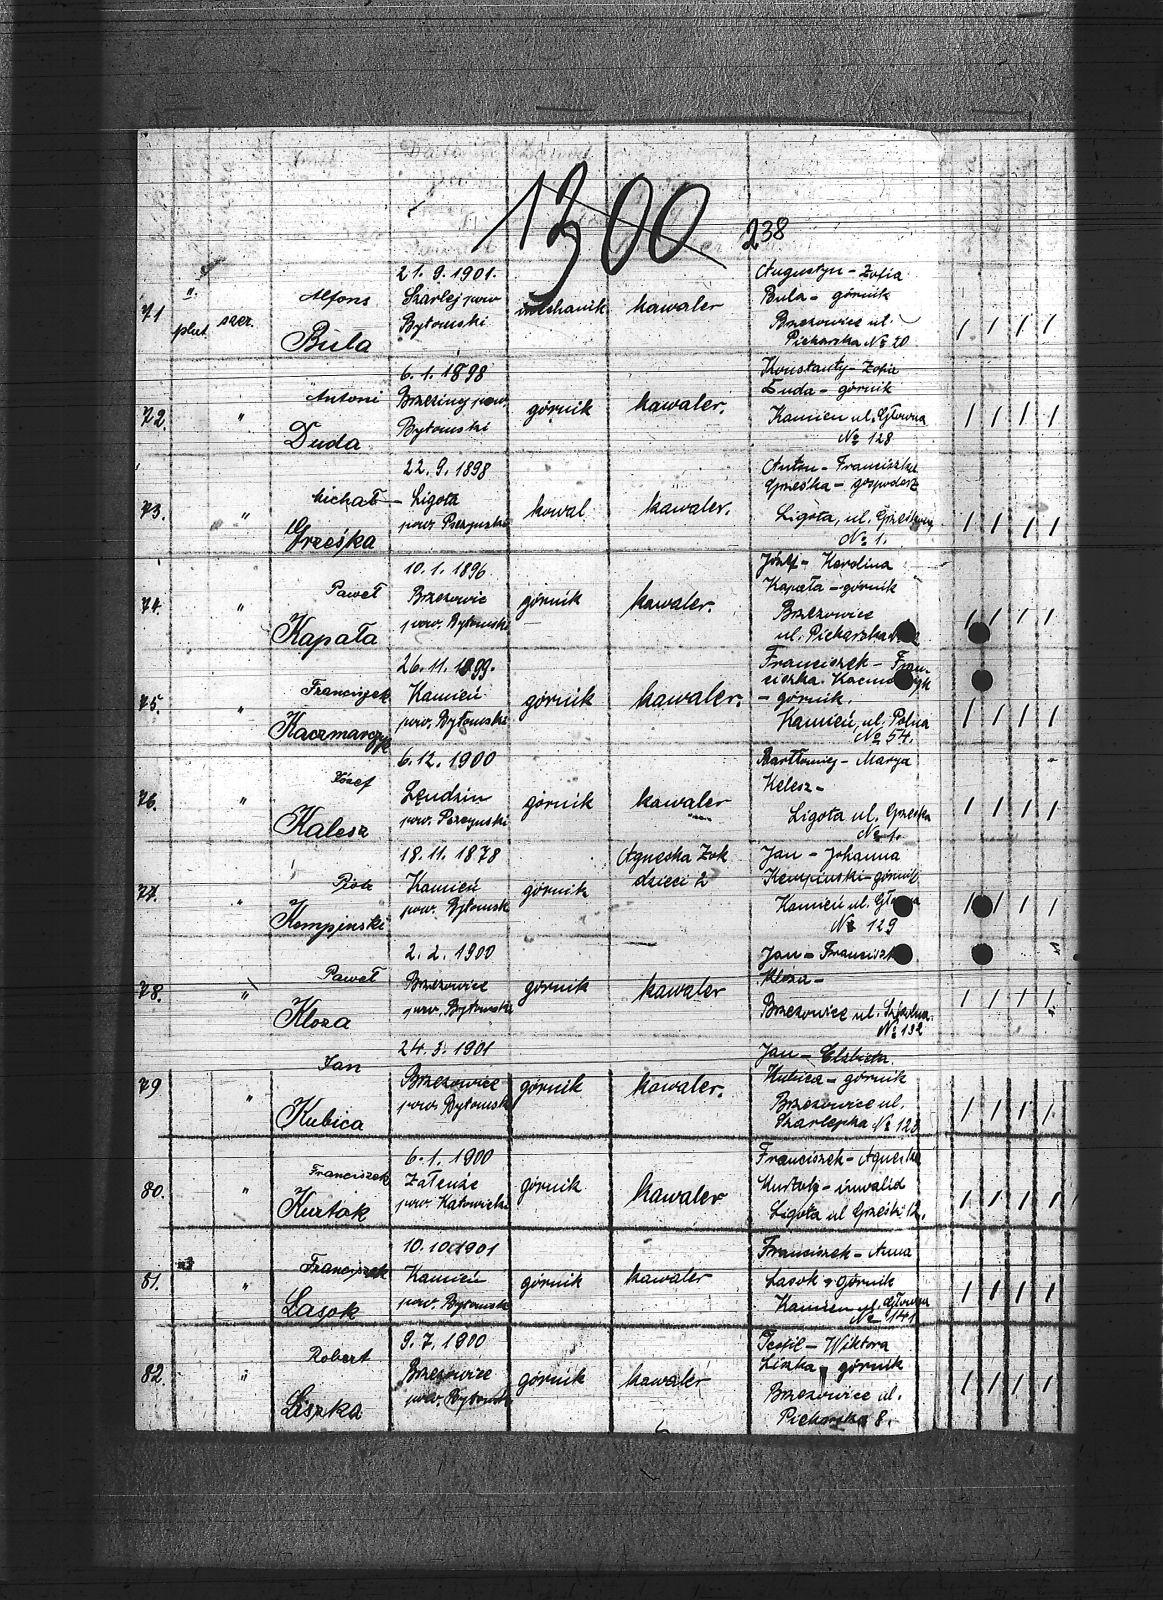 1300
238
71
II.
plut.
szer.
Alfons
Bula
21. 9. 1901.
Szarlej pow
Bytomski
mechanik
kawaler
Augustyn - Zofia
Bula - górnik
Brzezowice ul.
Piekarska № 20
72.
"
Antoni
Duda
6. 1. 1898
Brzeziny pow.
Bytomski
górnik
kawaler.
Konstanty - Zofia
Duda - górnik
Kamien ul. Głowna
№ 128
73.
"
Michał
Grześka
22. 9. 1898
Ligota
pow. Pszczynski
kowal
kawaler.
Anton - Franciszka
Grześka - gospodarz
Ligota, ul. Grześkowej
№ 1.
74.
"
Paweł
Kapała
10. 1. 1896
Brzezowic
pow. Bytomski
górnik
kawaler.
Józef - Karolina
Kapała - górnik
Brzezowice
ul. Piekarska
75.
"
Franciszek
Kaczmarczyk
26. 11. 1899.
Kamień
pow. Bytomski
górnik
kawaler.
Franciszek - Fran-
ciszka Kaczmarczyk
- górnik.
Kamień, ul. Polna
№ 54.
76.
"
Józef
Kalesz
6. 12. 1900
Lędzin
pow. Pszczynski
górnik
kawaler
Bartłomiej - Marya
Kelesz -
Ligota ul. Grześka
№ 1.
77.
"
Piotr
Kempinski
18. 11. 1878
Kamień
pow. Bytomsk
górnik
Agneska Żok
dzieci 2
Jan - Johanna
Kempinski - górnik
Kamień ul. Głowna
№ 129
78.
"
Paweł
Kloza
2. 2. 1900
Brzezowice
pow. Bytomski
górnik
kawaler
Jan - Francisz
Kloza -
Brzezowice ul. Szkolna.
№ 132
79
"
Jan
Kubica
24. 3. 1901
Brzezowice
pow. Bytomsk
górnik
kawaler.
Jan - Elżbieta.
Kubica - górnik
Brzezowice ul.
Szarlejska № 123
80.
"
Franciszek
Kurtok
6. 1. 1900
Załenże
pow. Katowicki
górnik
kawaler
Franciszek - Agneska
Kurtok - inwalid
Ligota ul Grześki 12.
81.
"
Franciszek
Lasok
10. 10. 1901
Kamień
pow. Bytomski
górnik
kawaler
Franciszek - Anna
Lasok - górnik
Kamien ul. Głowna
№ 141
82.
"
Robert
Liszka
9. 7. 1900
Brzezowice
pow. Bytomski
górnik
kawaler
Teofil - Wiktora
Liszka górnik
Brzezowice ul.
Piekarska 8.